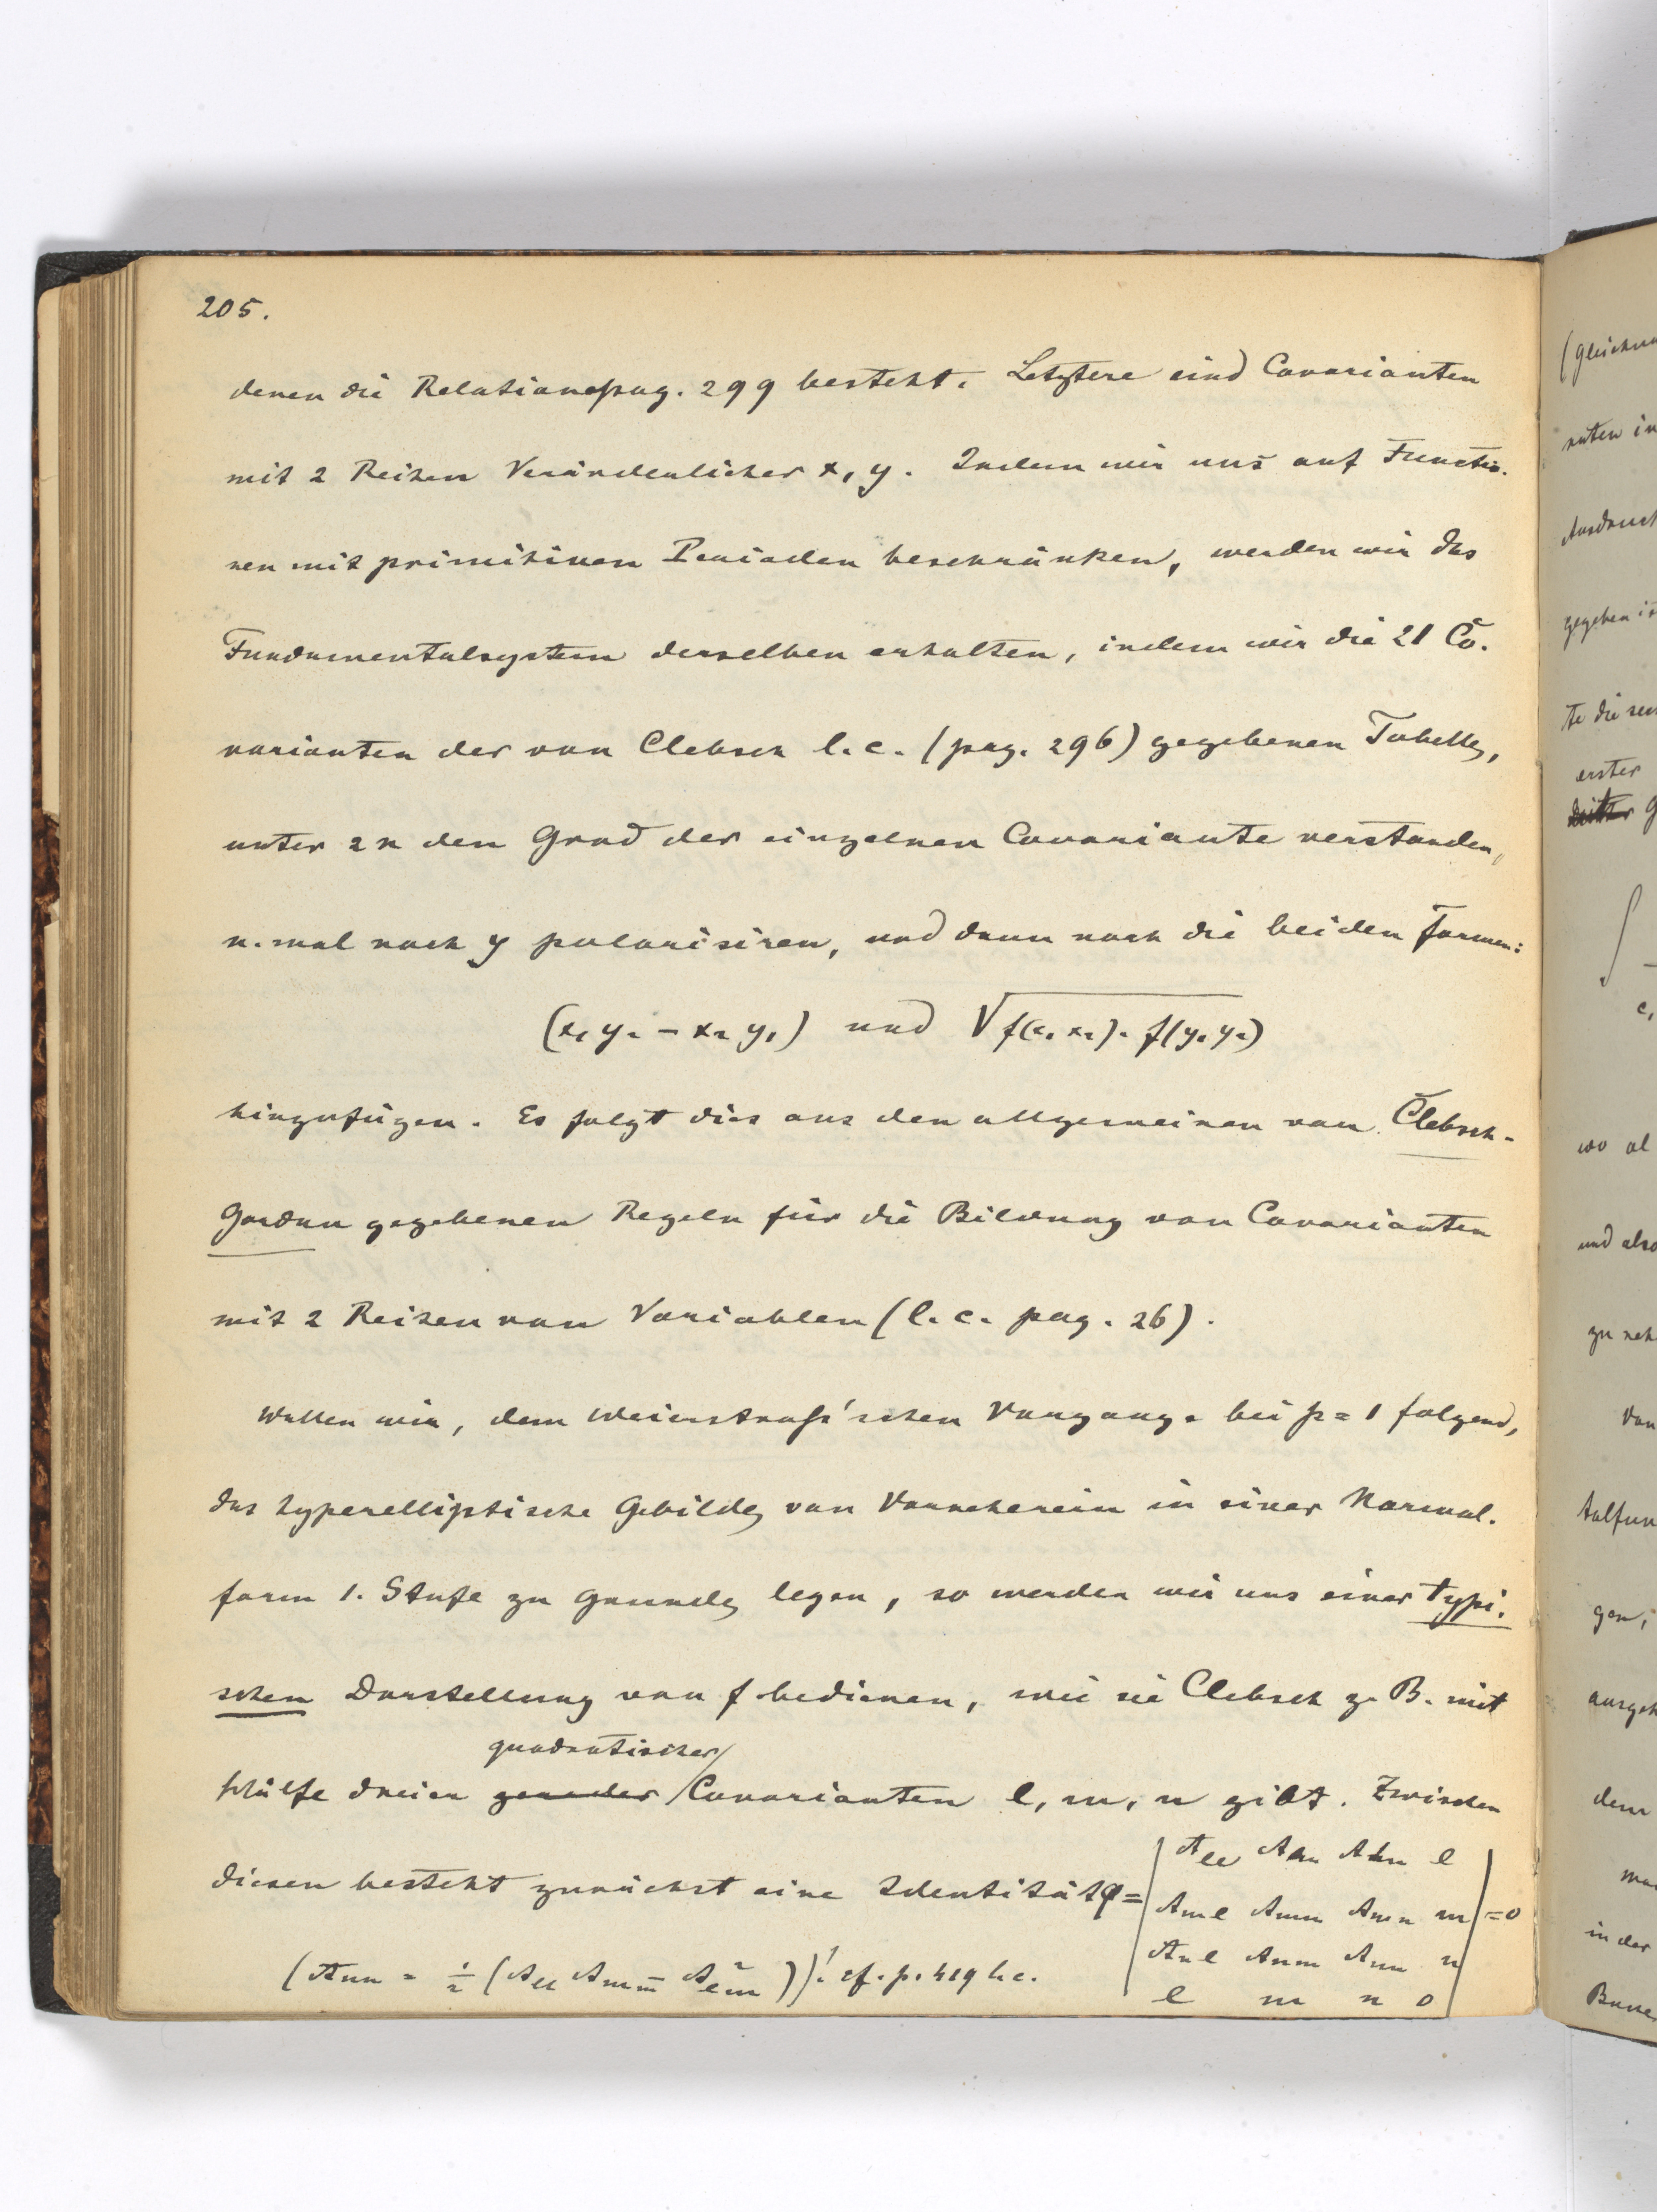 205.
denen die Relation pag. 299 besteht. Letztere sind Covarianten
mit 2 Reihen Veränderlicher x, y. Indem wir uns auf Functio-
nen mit primitiven Perioden beschränken, werden wir das
Fundamentalsystem derselben erhalten, indem wir die 21 Co-
varianten der von Clebsch l. c. (pag. 296) gegebenen Tabelle,
unter 2n den Grad der einzelnen Covariante verstanden,
n-mal nach y polarisiren, und dann noch die beiden Formen:
(x₁ y₂ - x₂ y₁) und √f(x₁ x₂). f(y₁ y₂)
hinzufügen. Es folgt dies aus den allgemeinen von Clebsch-
Gordan gegebenen Regeln für die Bildung von Covarianten
mit 2 Reihen von Variablen (l. c. pag. 26).
Wollen wir, dem Weierstraß'schen Vorgange bei p = 1 folgend,
das hyperelliptische Gebilde von Vorneherein in einer Normal-
form 1. Stufe zu Grunde legen, so werden wir uns einer typi-
schen Darstellung von f bedienen, wie sie Clebsch z. B. mit
quadratischer
Hülfe dreier gerader Covarianten l, m, n gibt. Zwischen
diesen besteht zunächst eine Identität φ =
A_ll A_lm A_ln l
A_ml A_mm A_mn m = 0
A_nl A_nm A_nn n
l m n 0
(A_nn = 1/2 (A_ll A_mm - A²_lm))! cf. p. 419 l. c.
(Gleichun
in
Ausdruck
gegeben is
te die
erster
dritter G
∫
c,
wo al
und also
zu neh
Von
talfun
gen,
ausgeh
dem
in der